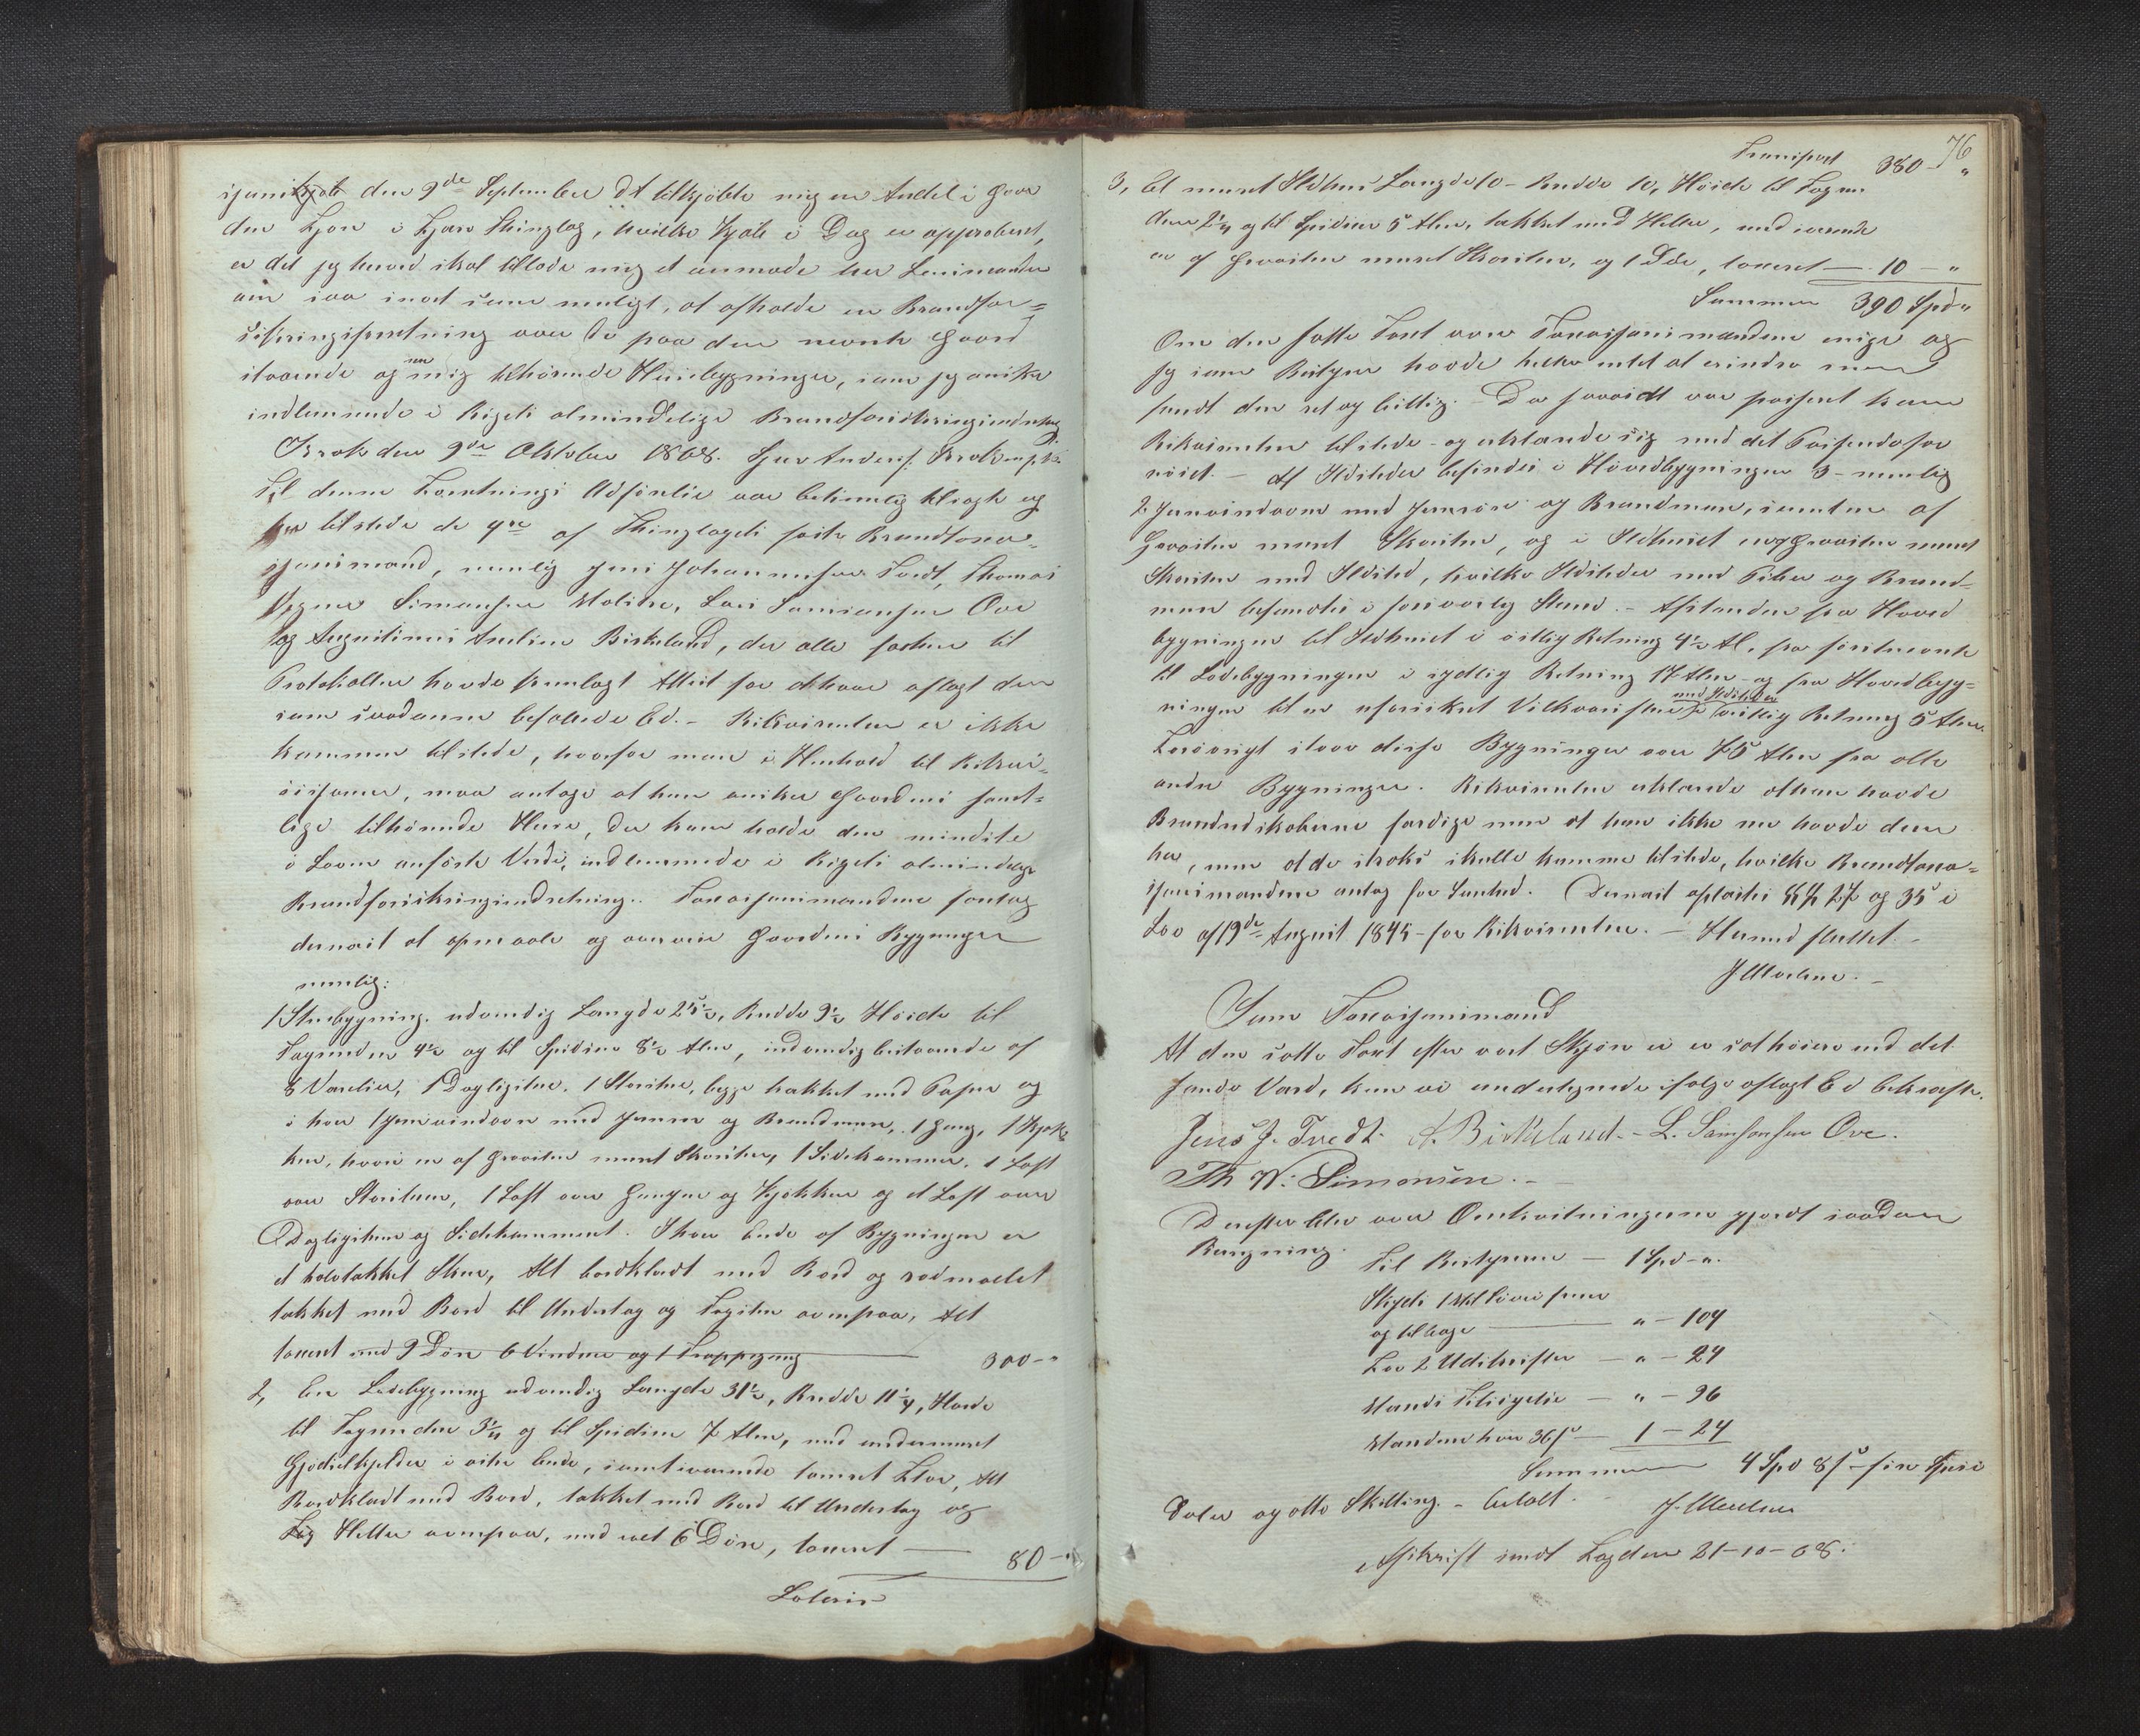 den 9de September d: A: tilkjøbte mig en Andel i Gaar
den Fjon i Fjære Thinglag, hvilke Kjøb i Dag er approberet,
er det jeg herved skal tillade mig at anmode Her Lensmanden
om saa snart som muligt, at afholde en Brandfor=
sikringsforretning over de paa den nævnte Gaard
staaende og mig tilhørende Huusbygninger, som jeg ønsker
indlemmede i Rigets almindelige Brandforsikringsindretning
den 9de Oktober 1868.
Til denne Forretnings Udførelse var betimelig tilsagte og
tilstede de 4re af Thinglagets faste Brandtaxa-
tjonsmænd, nemlig Jens Johannessen Tvedt, Thomas
Simonsen, Lars Samsonsen Ove
og Augustinus Birkeland, der alle forhen til
Protokollen havde fremlagt Attest for at have aflagt den
som saadanne befalede Ed. - Rekvirenten er ikke
kommen tilstede, hvorfor man i Henhold til Rekvi-
sisjonen, maa antage at han ønsker Gaardens samt=
lige tilhørende Huse, der kan holde den mindste
i Loven anførte Værdi, indlemmede i Rigets almindelige
Brandforsikringsindretning. Taxasjonsmændene foretog
dernæst at opmaale og overvære Gaardens Bygninger
nemlig:
1 Stuebygning. udvendig Længde 25½, Bredde 9½ Høide til
Tagrenden 4½ og til Spidsen 8½ Alen, indvendig bestaaende af
8 Værelser, 1 Dagligstue, 1 Storstue, begge trukket med Papir og
i hver 1 Jernvindovn med Jernrør og Brandmur, 1 Gang, 1 Kjøk-
ken, hvori en af Graasten muret Skorsten, 1 Sidekammer, 1 Loft
over Storstuen, 1 Loft over Gangen og Kjøkken og et Loft over
Dagligstuen og Sidekammeret. I hver Ende af Bygningen er
et halvtakket Skur, Alt bordklædt med Bord og rødmalet
takket med Bord til Undertag og Tagsten ovenpaa, Alt
taxeret med 9 Døre 6 Vinduer og 1 Trappegang 300 - "
2, En Ladebygning udvendig Længde 31½, Bredde 11¼, Høide
til Tagrenden 3¼ og til Spidsen 7 Alen, med undermuret
Gjødselkjelder i østre Ende, samt værende tømret Flor, Alt
Bordklædt med Bord, takket med Bord til Undertag og
Heller ovenpaa, med ialt 6 Døre, taxeret — 80 - "
Lateris
76
Transport 380 - "
3, Et muret Ildhus Længde 10 - Bredde 10, Høide til Tagren
den 2¼ og til Spidsen 5 Alen, takket med Heller, med iværende
en af Graasten muret Skorsten, og 1 Dør, taxeret — 10 - "
Summa 390 Spd "
Om den satte Taxt vare Taxasjonsmændene enige og
jeg som Bestyrer havde heller intet at erindre men
fandt den ret og billig. - Da saavidt var passeret kom
Rekvirenten tilstede - og erklærede sig med det Passerede for
nøiet. - Af Ildsteder befindes i Hovedbygningen 3 - nemlig
2 Jernvindovne med Jernrør og Brandmur, samt en af
Graasten muret Skorsten, og i Ildhuset en af Graasten muret
Skorsten med Ildsted, hvilke Ildsteder med Piber og Brand-
mure befandtes i forsvarlig Stand. - Afstanden fra Hoved
bygningen til Ildhuset i østlig Retning 4½ Al. fra førstnævnte
til Ladebygningen i sydlig Retning 17 Alen - og fra Hovedbyg=
ningen til en uforsikret Vilkaarsstue med Ildsteder i vestlig Retning 5 Alen.
Forøvrigt staar disse Bygninger over 75 Alen fra alle
andre Bygninger. Rekvirenten erklærede at han havde
Brandredskaberne færdige men at han ikke nu havde dem
her, men at de straks skulle komme tilstede, hvilke Brandtaxa-
sjonsmændene antog for Sandhed. Dernæst oplæstes §§ 27 og 35 i
Lov af 19de August 1845 - for Rekvirenten. - Hermed sluttet. -
Som Taxasjonsmænd
At den satte Taxt efter vort Skjøn ei er sat høiere end det
sande Værd, kan vi undertegnede ifølge aflagt Ed bekræfte.
Jens J. Tvedt. A. Birkeland. - L. Samsonsen Ove.
Th W: Simonsen. -
Derefter blev over Omkostningerne gjordt saadan
Beregning.
Til Bestyreren — 1 Spd - ".
Skyds 1 Mil Søvei frem
og tilbage — " - 104
For 2 Udskrifter — " - 24
Mands Tilsigelse — " - 96
Mændene hver 36 s — 1 - 24
Summa — 4 Spd 8 s - fire Spesi
Daler og otte Skilling. - betalt.
Afskrift sendt Fogden 21-10-68.